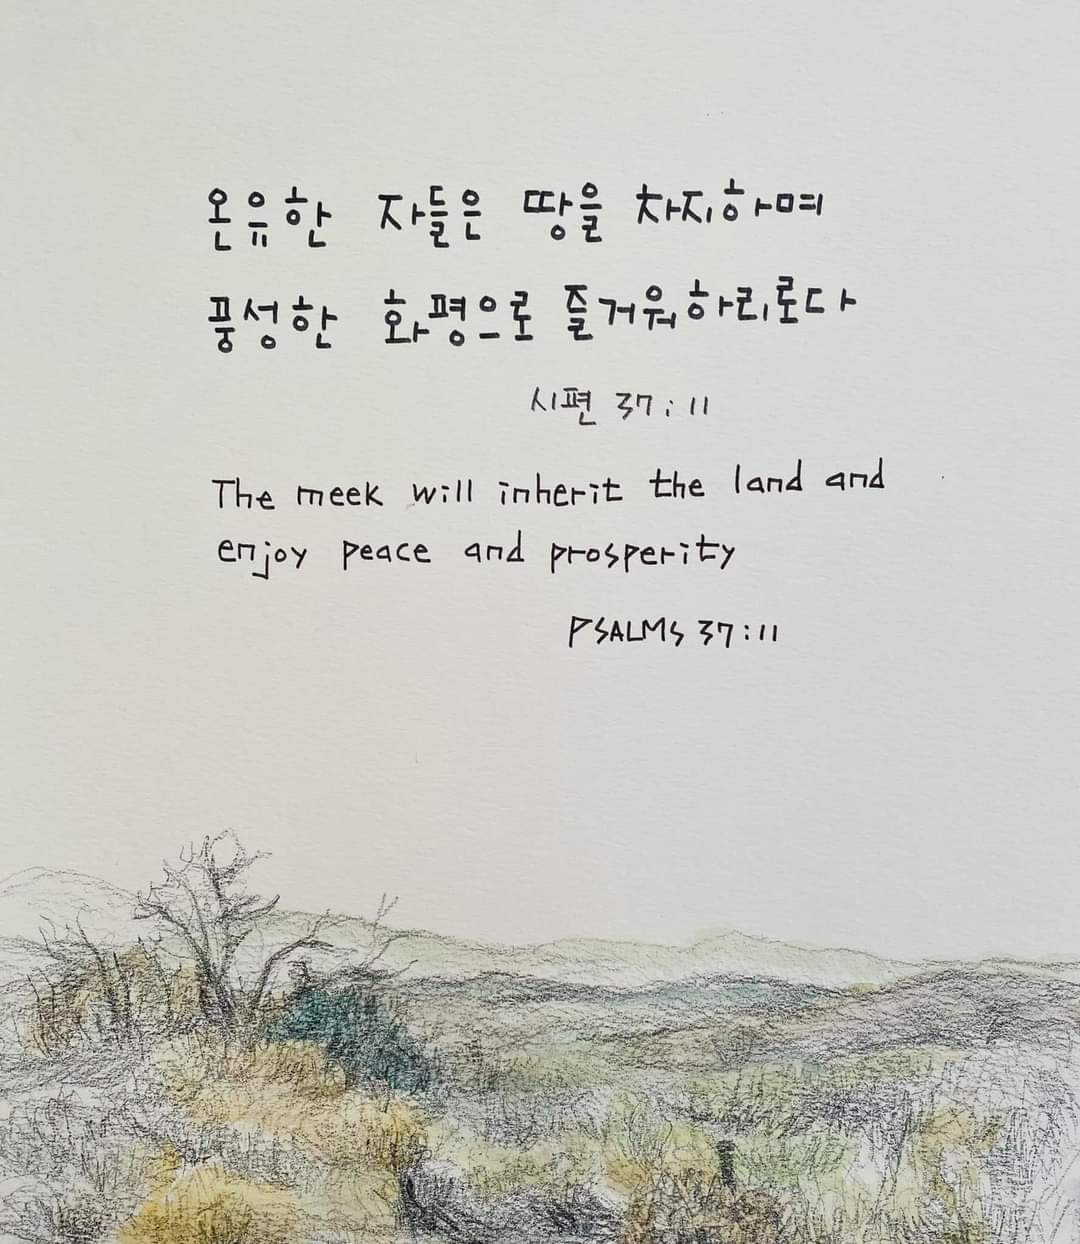 온유한 자들은 땅을 차지하며
풍성한 화평으로 즐거워하리로다
시편 37:11
The meek will inherit the land and
enjoy peace and prosperity
PSALMS 37:11